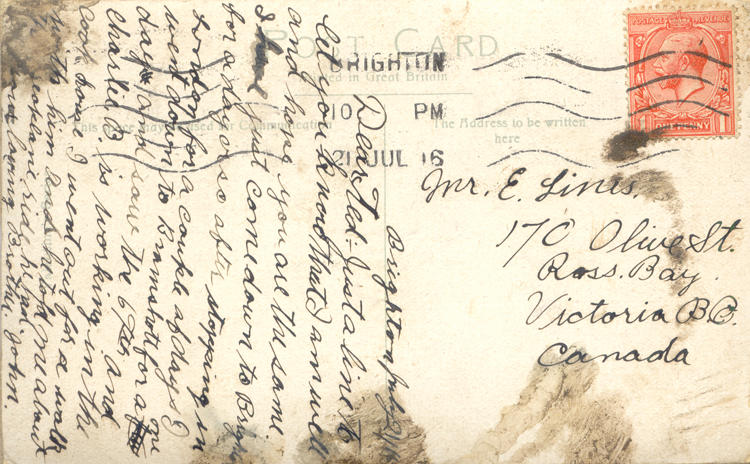 POST CARD
Printed in Great Britain
POSTAGE REVENUE
1 ONE PENNY 1
BRIGHTON
10 PM
21 JUL 16
This space may be used for Communication
The Address to be written
here
Mr. E. Lines.
170 Olive St.
Ross. Bay.
Victoria B.C.
Canada
Brighton July 21/16
Dear Ted:- Just a line to
let you know that I am well
and hope you are the same
I have just come down to Brighton
for a day or so after stopping in
London for a couple of days I
went down to Bramshott for a
day and saw the 67th and one
Charlie B. is working in the
I went out for a walk
with him and he took me about
Your loving Brother John.